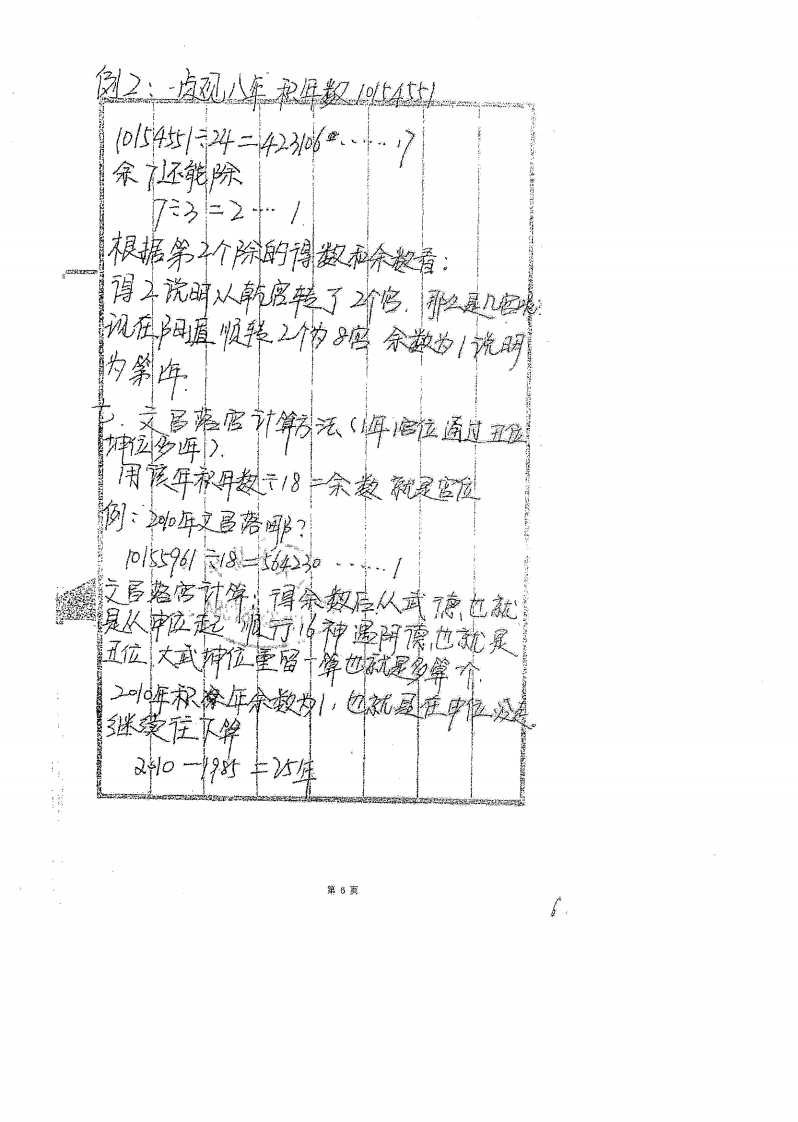 例2：贞观八年 积年数10154551
10154551÷24=423106……7
余7还能除
7÷3=2……1
根据第2个除的得数和余数看：
得2说明从乾宫转了2个宫，那么是几宫呢？
现在阳遁顺转2个为8宫 余数为1说明
为第1年.
七、文昌落宫计算方法（1年1宫位通过丑位
坤位多1年）.
用该年积年数÷18=余数就是宫位
例：2010年文昌落哪？
10155961÷18=564220……1
文昌落宫计算：得余数后从武德也就
是从申位起 顺行16神遇阴德也就是
丑位，大武坤位重留一算也就是多算一个.
2010年积年余数为1，也就是在申位没走。
继续往下算
2010-1985=25年
第 6 页
6.